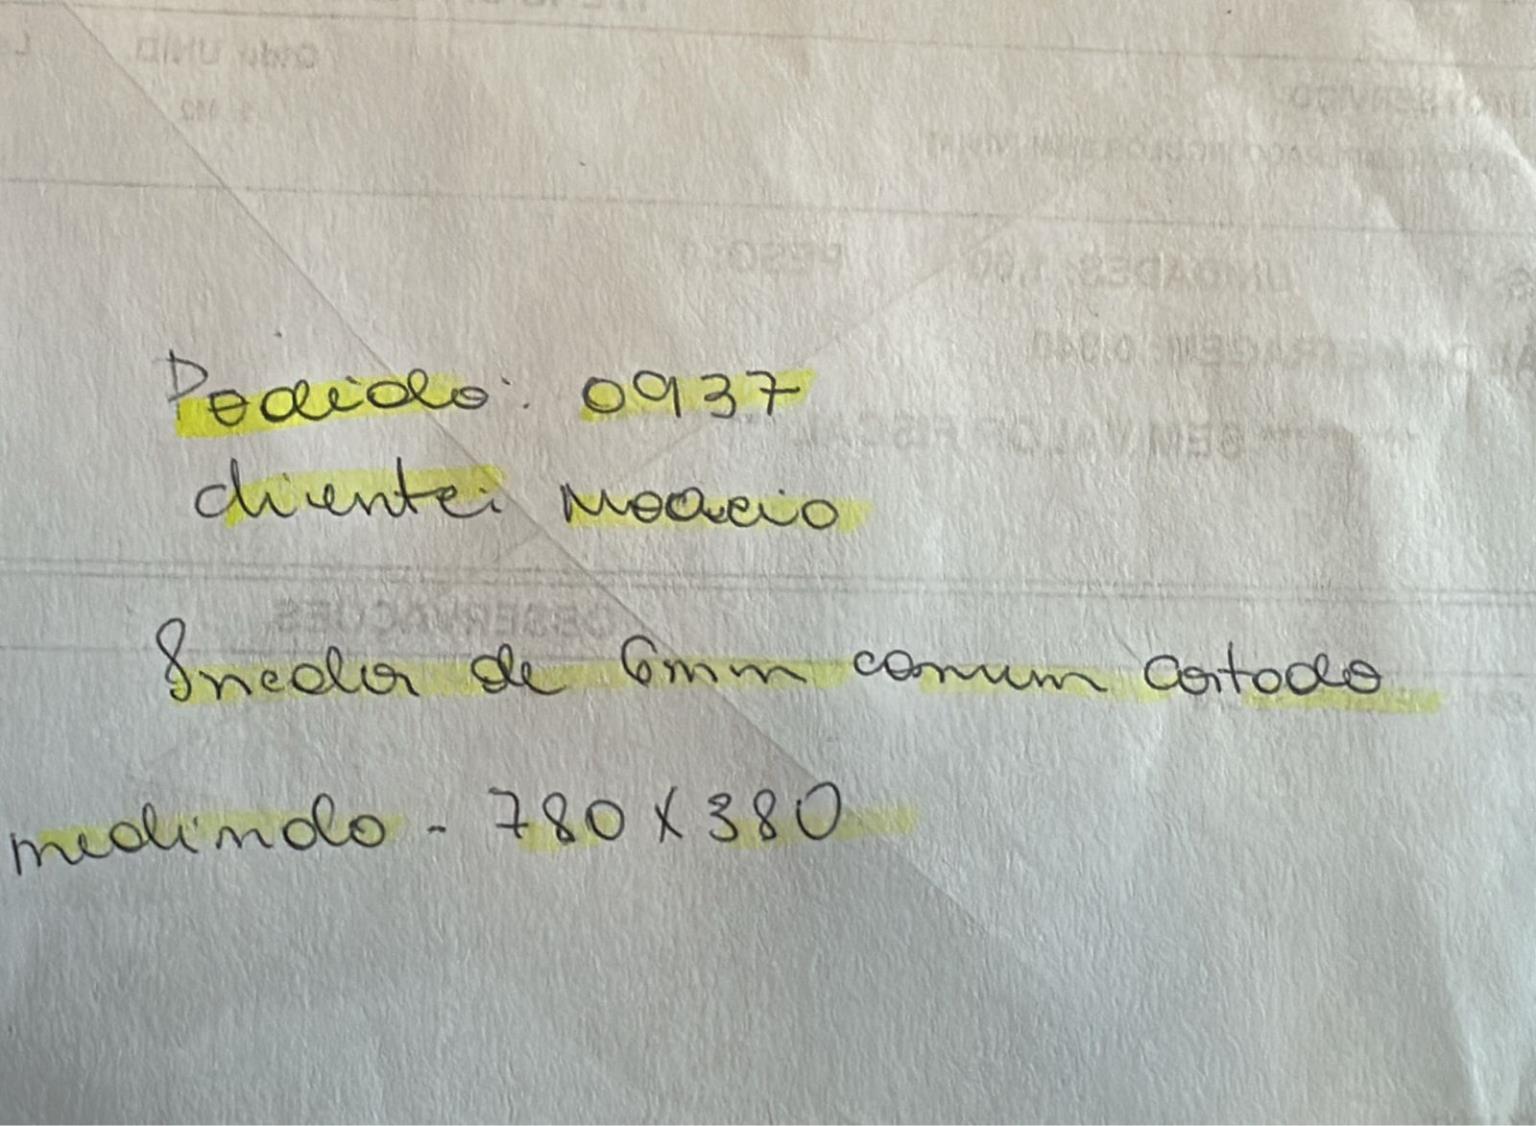 Pedido: 0937
cliente: Moacio
Incolor de 6mm comum cortado
medindo - 780 X 380